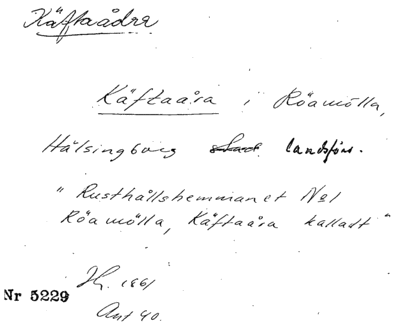 Käftaådra
Käftaåra i Röamölla,
Hälsingborg stad. landsförs.
"Rusthållshemmanet No1
Röamölla, Käftaåra kalladt"
Jh. 1861
Nr 5229
Ant 40.